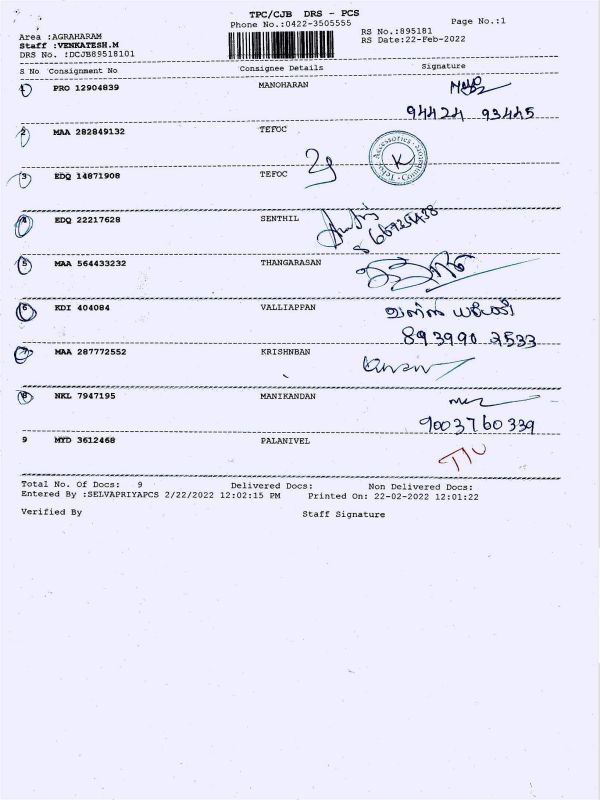 TPC/CJB DRS - PCS
Phone No.:0422-3505555 Page No.:1
Area :AGRAHARAM RS No.:895181
Staff :VENKATESH.M RS Date:22-Feb-2022
DRS No. :DCJB89518101
S No Consignment No Consignee Details Signature
1 PRO 12904839 MANOHARAN
94424 93445
2 MAA 282849132 TEFOC
3 EDQ 14871908 TEFOC
4 EDQ 22217628 SENTHIL
5 MAA 564433232 THANGARASAN
6 KDI 404084 VALLIAPPAN
893990 2533
7 MAA 287772552 KRISHNBAN
8 NKL 7947195 MANIKANDAN
9003760339
9 MYD 3612468 PALANIVEL
Total No. Of Docs: 9 Delivered Docs: Non Delivered Docs:
Entered By :SELVAPRIYAPCS 2/22/2022 12:02:15 PM Printed On: 22-02-2022 12:01:22
Verified By Staff Signature